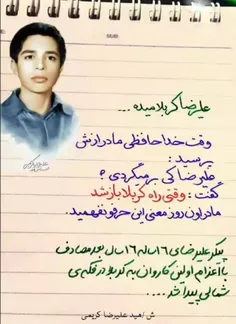 علیرضا کربلا میده ...
وقت خداحافظی مادر ازش
پرسید :
علیرضا کی برمیگردی ؟
گفت : وقتی راه کربلا باز شد
مادر اون روز معنی این حرفو نفهمید.
پیکر علیرضای ۱۶ ساله ۱۶ سال بعد مصادف
با اعزام اولین کاروان به کربلا در فکه ی
شمالی پیدا شد ...
ش /هید علیرضا کریمی